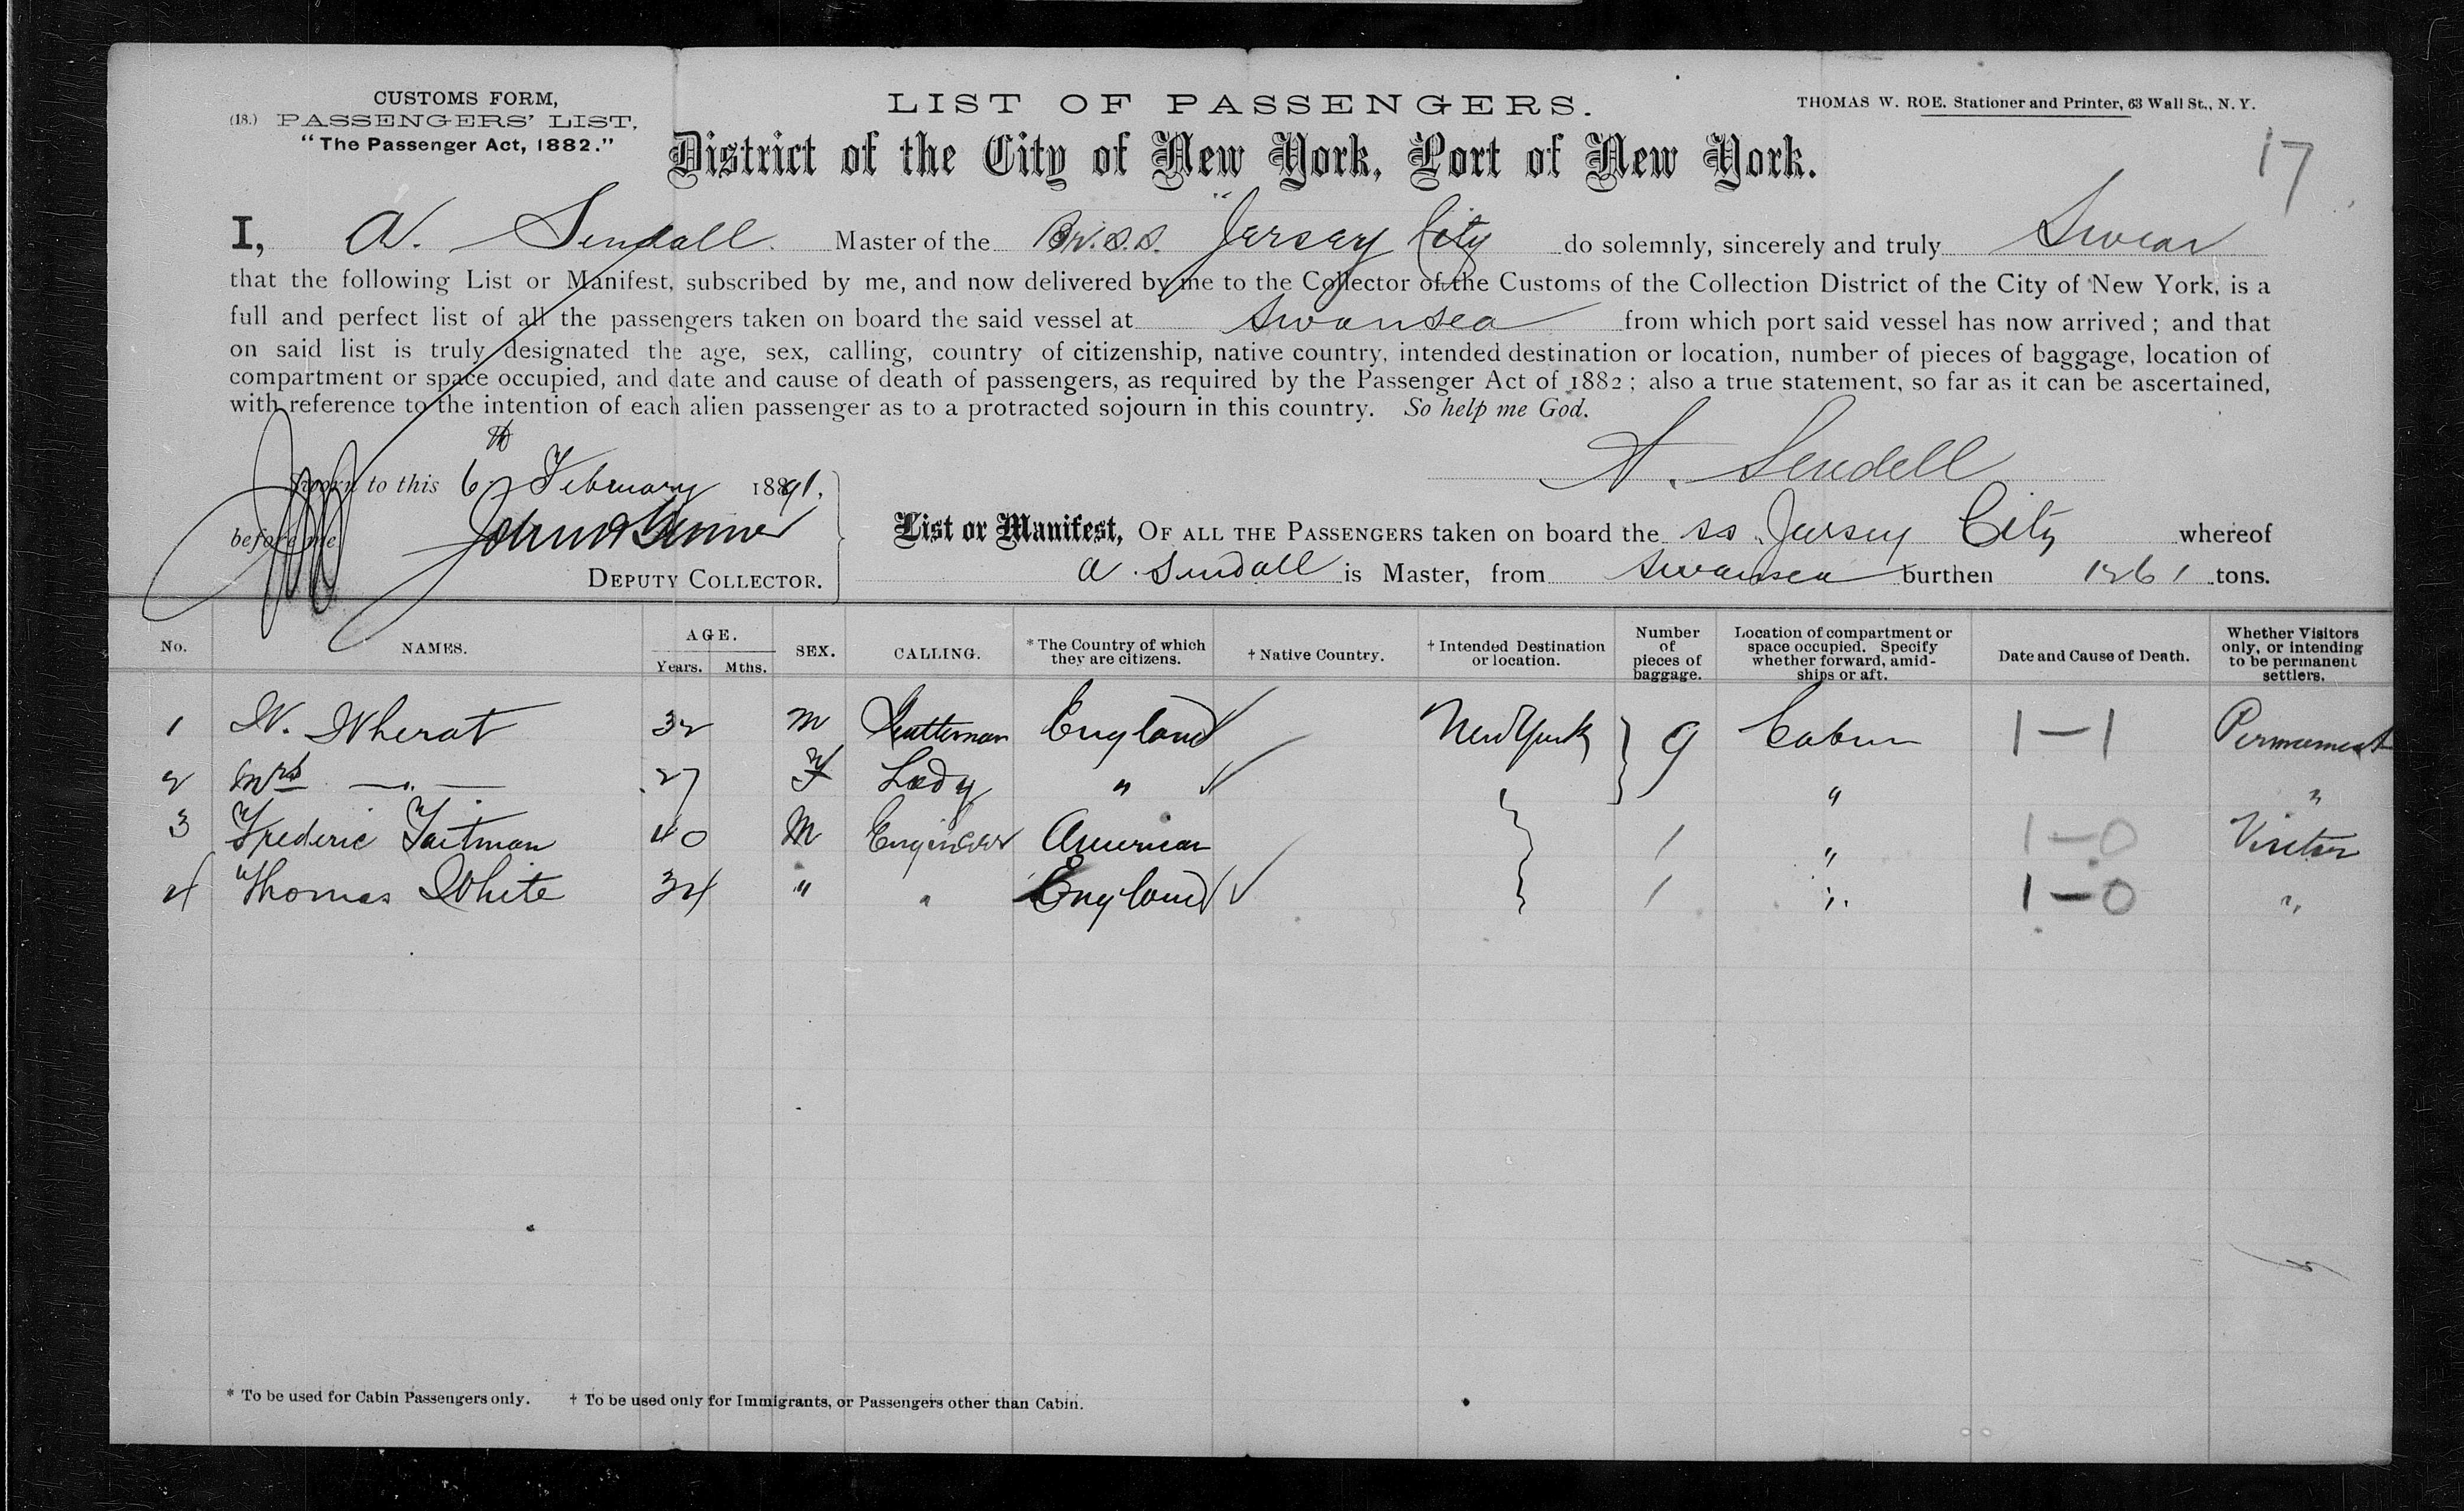 CUSTOMS FORM,
(18.) PASSENGERS' LIST,
"The Passenger Act, 1882."
LIST OF PASSENGERS.
THOMAS W. ROE, Stationer and Printer, 63 Wall St., N. Y.
17
District of the City of New York, Port of New York.
I, A. Sendall Master of the Br. S.S. "Jersey City do solemnly, sincerely and truly Swear
that the following List or Manifest, subscribed by me, and now delivered by me to the Collector of the Customs of the Collection District of the City of New York, is a
full and perfect list of all the passengers taken on board the said vessel at Swansea from which port said vessel has now arrived; and that
on said list is truly designated the age, sex, calling, country of citizenship, native country, intended destination or location, number of pieces of baggage, location of
compartment or space occupied, and date and cause of death of passengers, as required by the Passenger Act of 1882; also a true statement, so far as it can be ascertained,
with reference to the intention of each alien passenger as to a protracted sojourn in this country. So help me God.
A. Sendell
Sworn to this 6th February 1891.
before me
DEPUTY COLLECTOR.
List or Manifest, OF ALL THE PASSENGERS taken on board the ss Jersey City whereof
A. Sendall is Master, from Swansea burthen 1261 tons.
No. NAMES. AGE. Years. Mths. SEX. CALLING. * The Country of which they are citizens. † Native Country. † Intended Destination or location. Number of pieces of baggage. Location of compartment or space occupied. Specify whether forward, amidships or aft. Date and Cause of Death. Whether Visitors only, or intending to be permanent settlers.
1 W. Wherat 32 M Gentleman England New York 9 Cabin 1—1 Permanent
2 Mrs —"— 27 F Lady " " "
3 Frederic 40 M Engineer American 1 " 1—0 Visitor
4 Thomas White 34 " " England 1 " 1—0 "
* To be used for Cabin Passengers only. † To be used only for Immigrants, or Passengers other than Cabin.